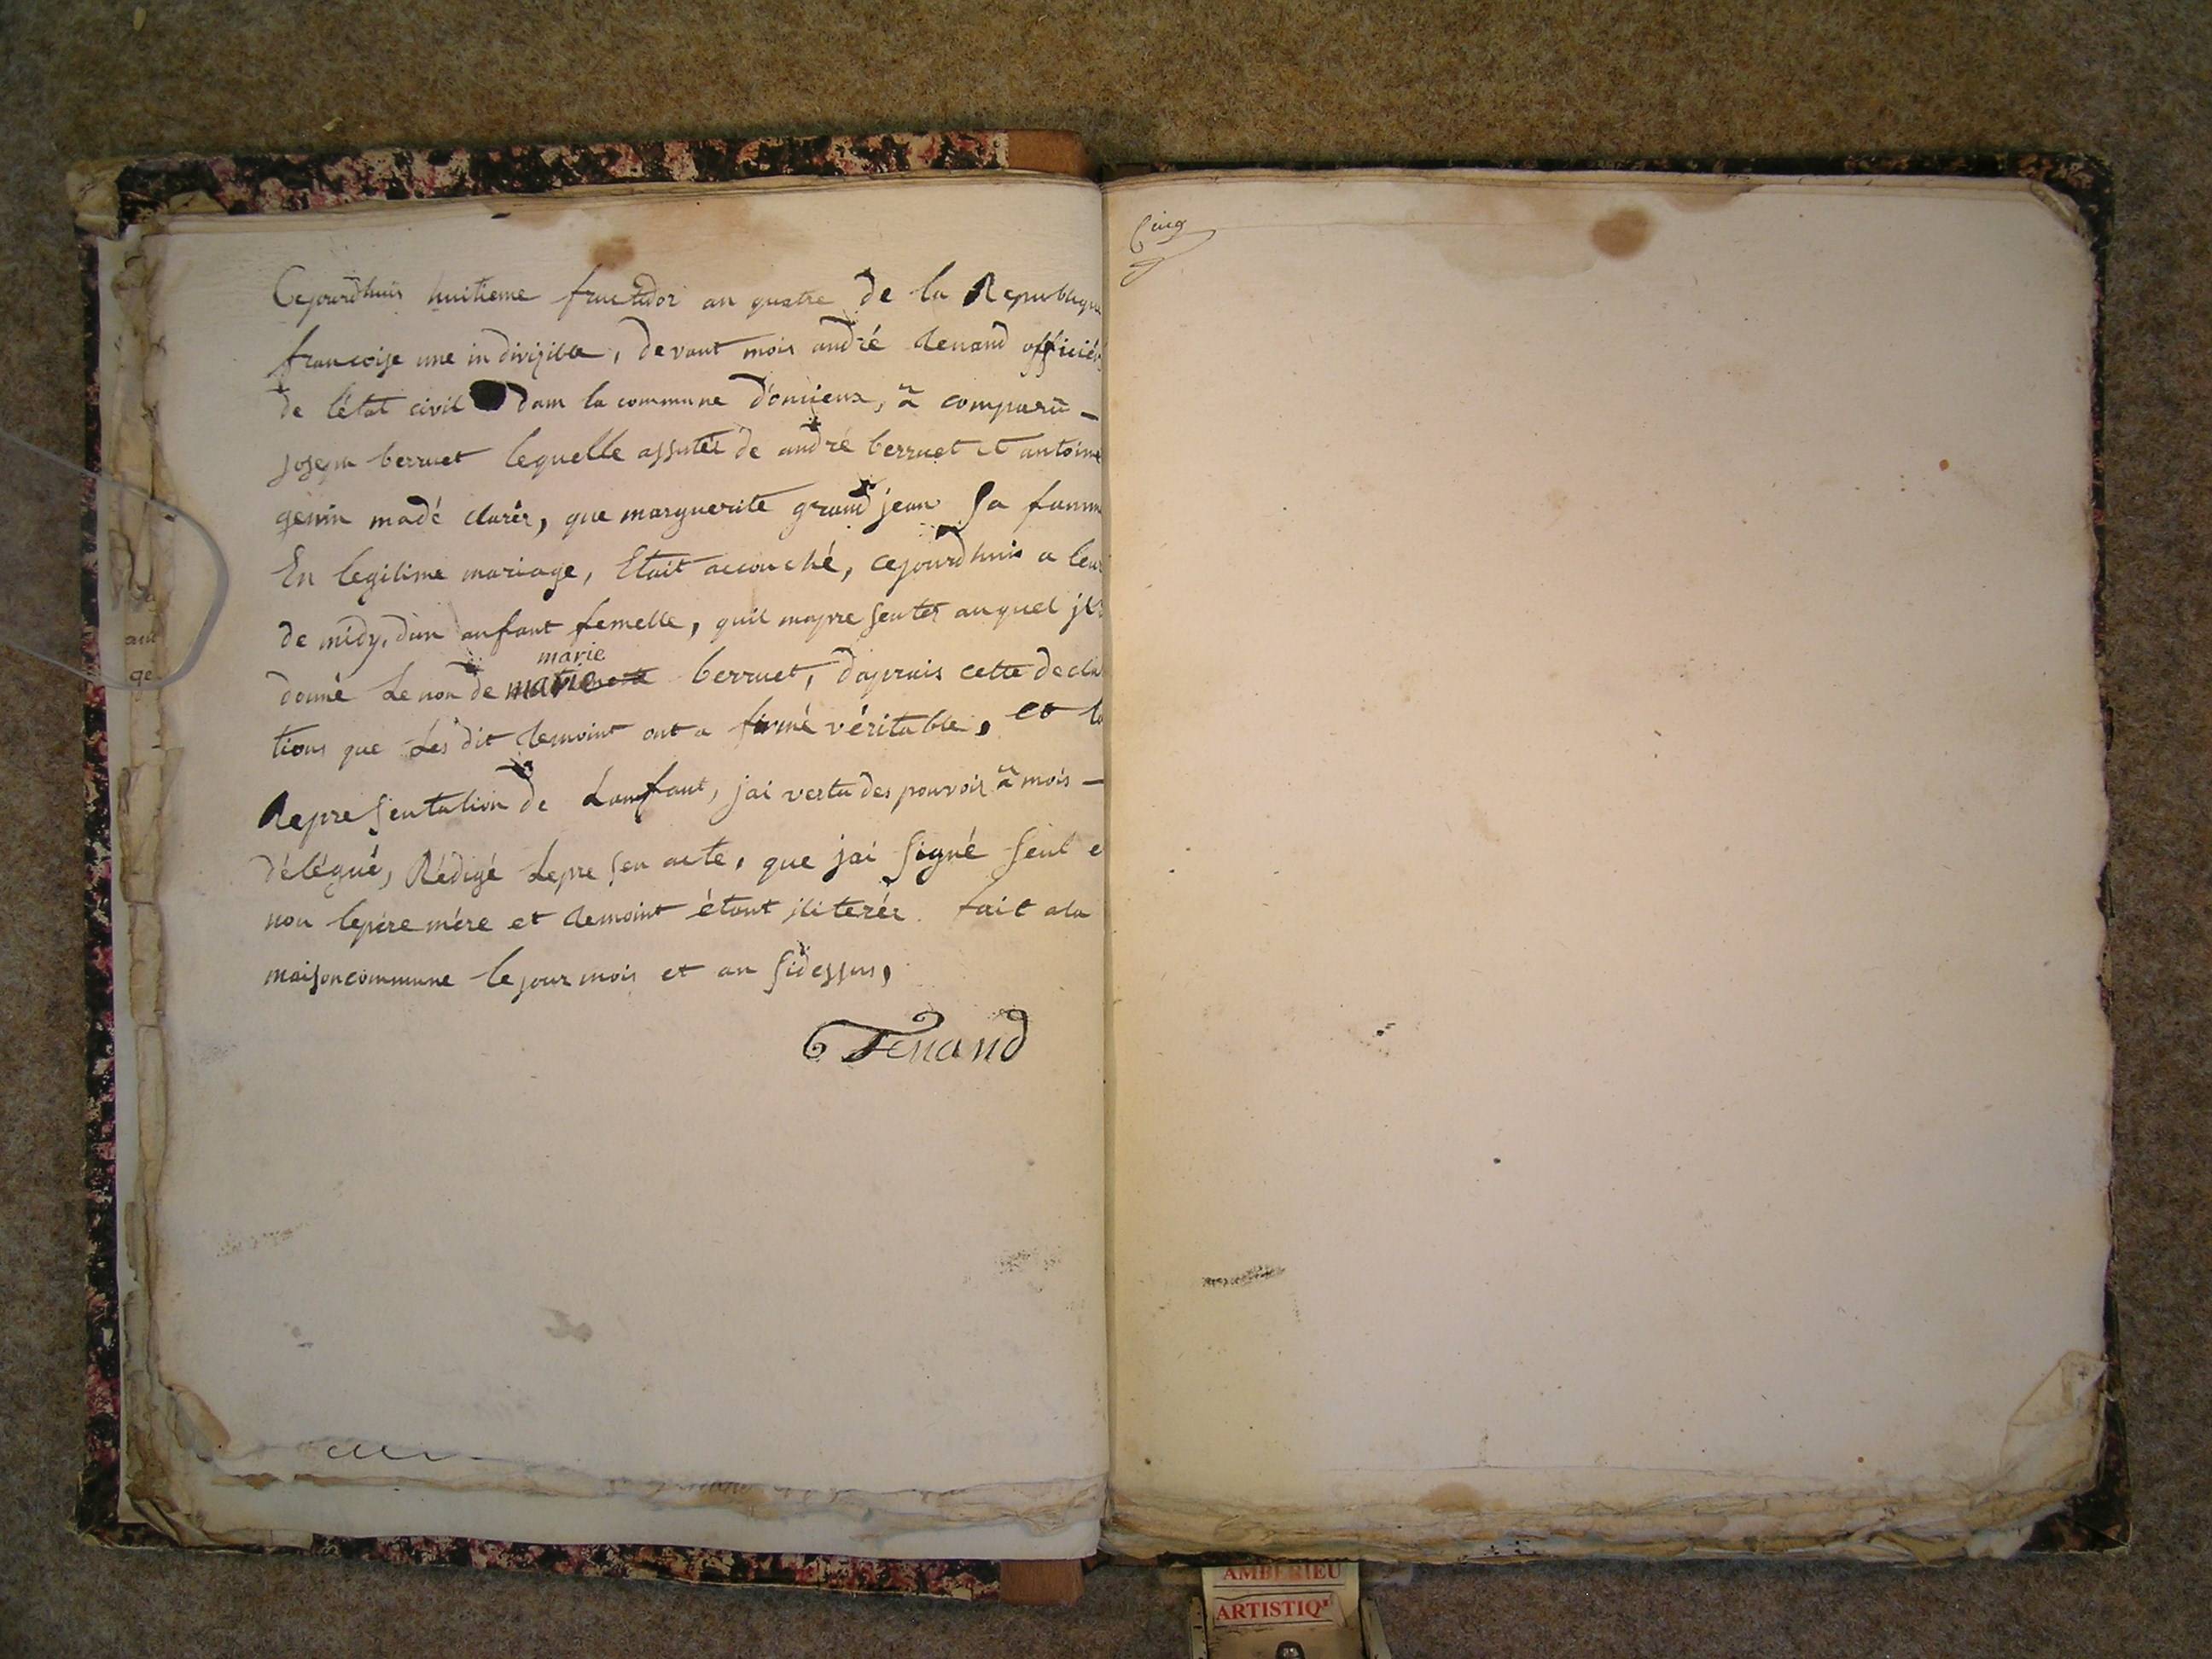 Cejourdhuis huitieme fructidor an quatre de la Republique
francoise une indivizible, devant mois andré tenand officiér
de létat civil dans la commune d'oncieux, ä comparü -
joseph berruet lequelle assistéz de andré berruet et antoine
genin madé clarér, que marguerite grand jean Sa famme
En legitime mariage, Etait accouché, cejourdhuis a
de midy, dun anfant femelle, quil mapresentez auquel
donné Le non de marie marie berruet, daprais cette decla
tions que Les dit temoint ont a firmé véritable, et la
Representation de Lanfant, jai vertu des pouvoir ä mois -
délégué, Rédigé Lepresen acte, que jai Signé Seul e
non lepére mére et temoint étant iliteréz. fait ala
maisoncommune le jour mois et an Sidessus,
Tenand
Cinq
AMBERIEU
ARTISTIQ